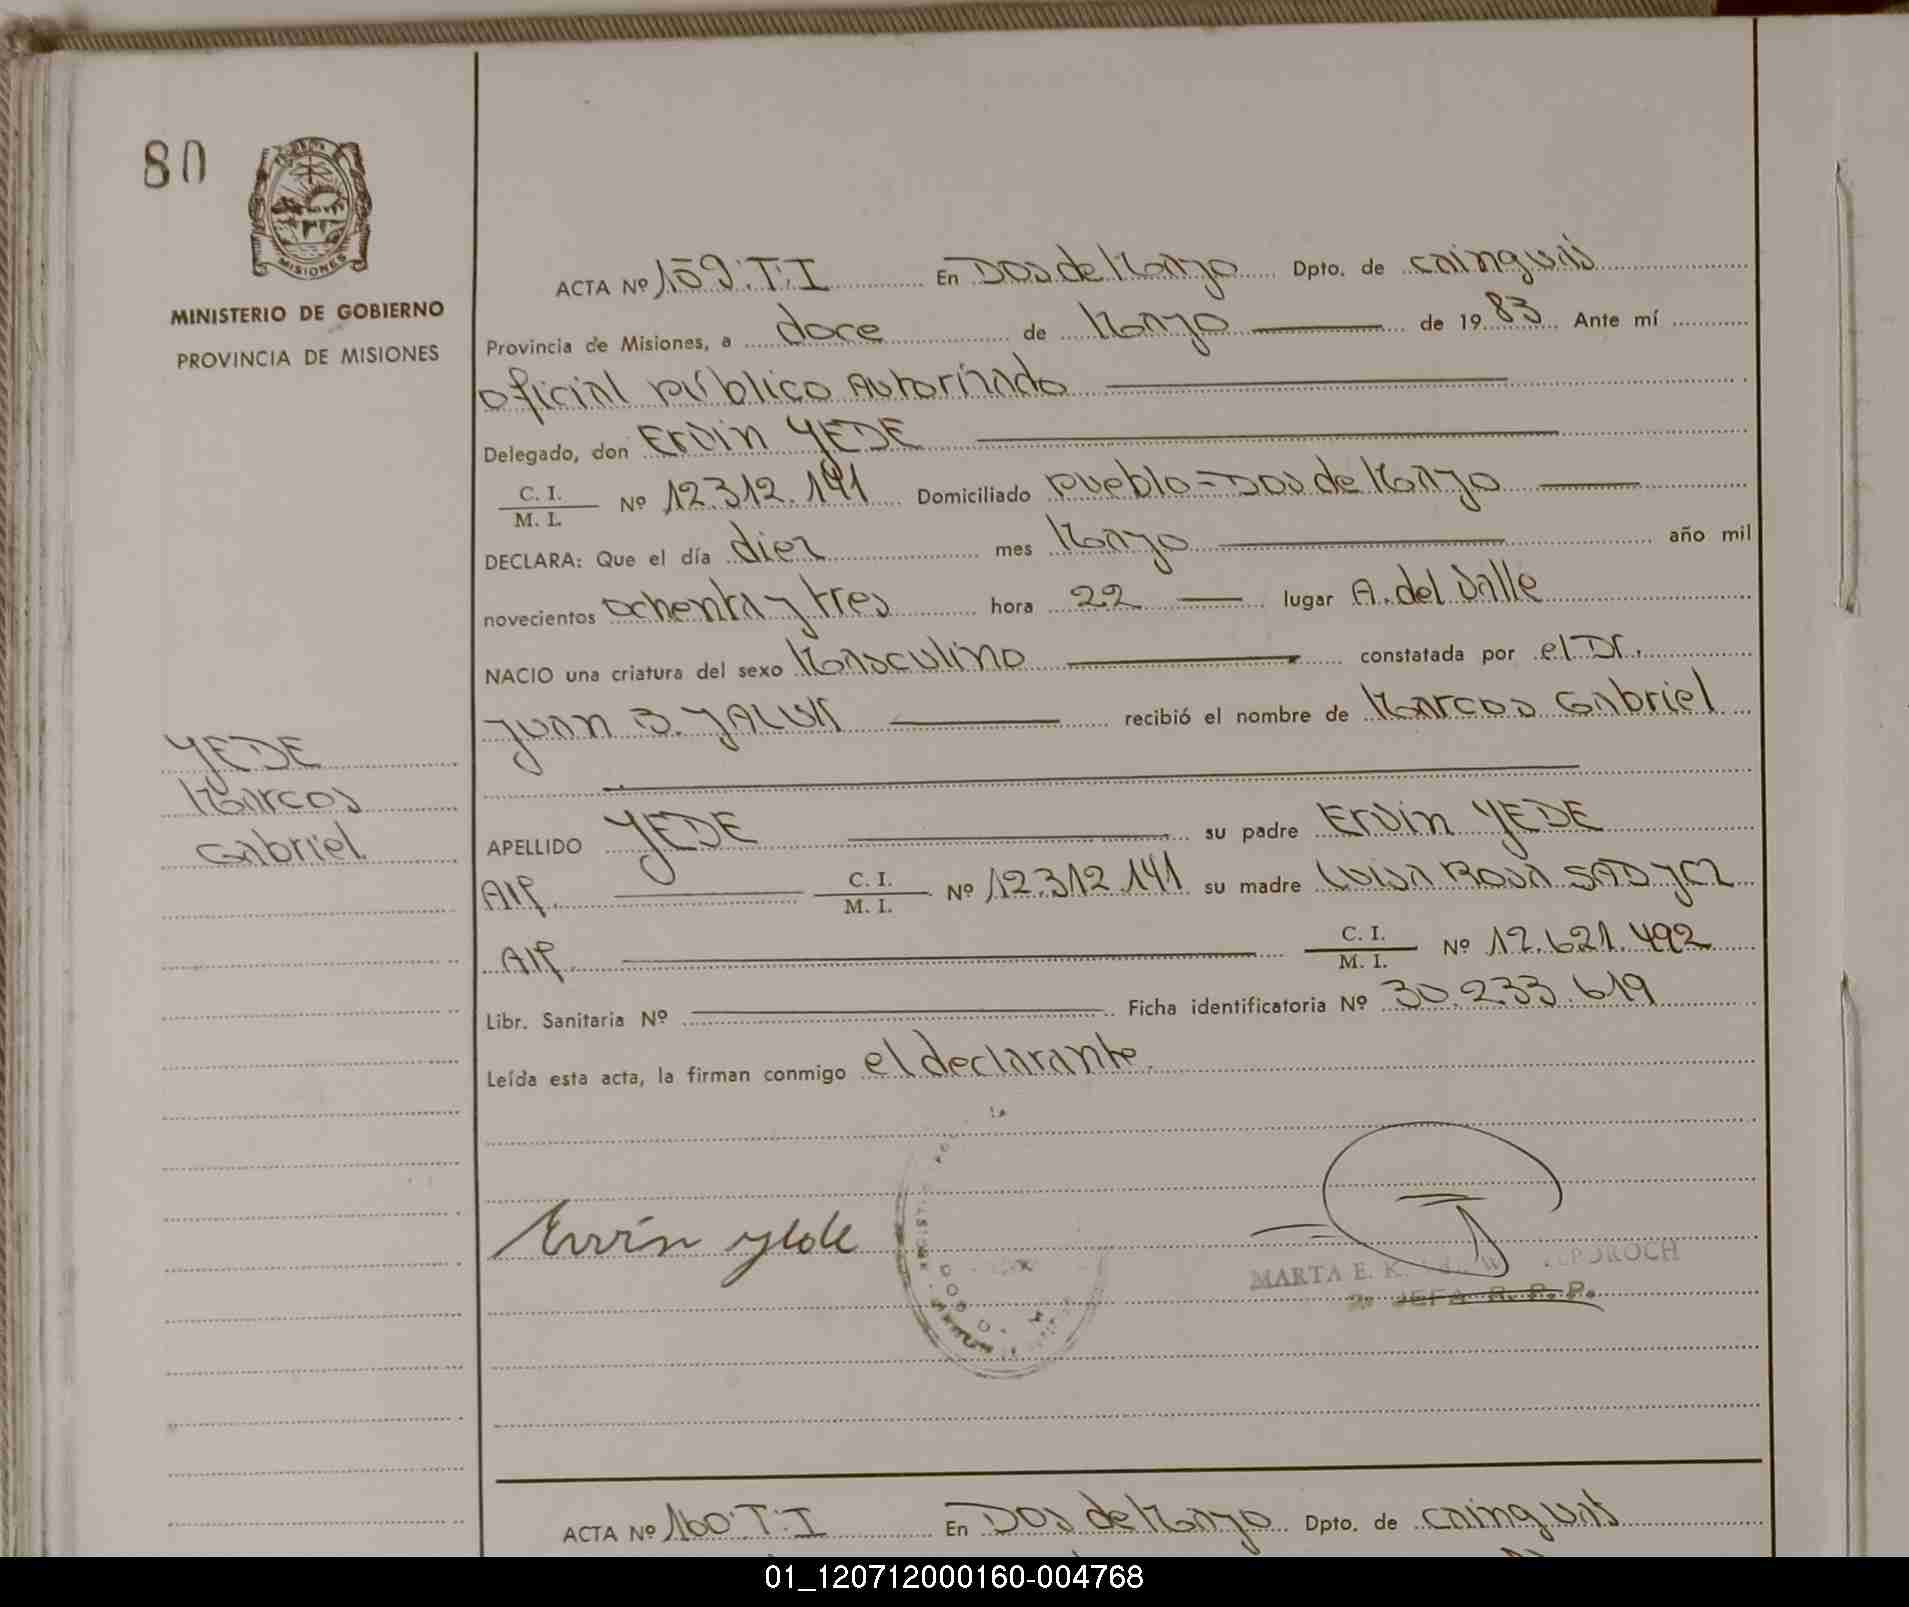 80
MISIONES
MINISTERIO DE GOBIERNO
PROVINCIA DE MISIONES
ACTA Nº 159.T.I En Dos de Mayo Dpto. de Cainguás
Provincia de Misiones, a doce de Mayo de 1983 Ante mí
Oficial público Autorizado
Delegado, don Ervin YEDE
C. I. / M. I. Nº 12.312.141 Domiciliado Pueblo = Dos de Mayo
DECLARA: Que el día diez mes Mayo año mil
novecientos ochenta y tres hora 22 lugar A. del Valle
NACIO una criatura del sexo Masculino constatada por el Dr.
Juan B. recibió el nombre de Marcos Gabriel
YEDE
Marcos
Gabriel
APELLIDO YEDE su padre Ervin YEDE
C. I. / M. I. Nº 12.312.141 su madre Luisa Rosa
C. I. / M. I. Nº 12.621.492
Libr. Sanitaria Nº Ficha identificatoria Nº 30.233.619
Leída esta acta, la firman conmigo el declarante.
Ervin yede
MARTA E. K.
JEFA R. P. P.
ACTA Nº 160.T.I En Dos de Mayo Dpto. de Cainguás
01_120712000160-004768